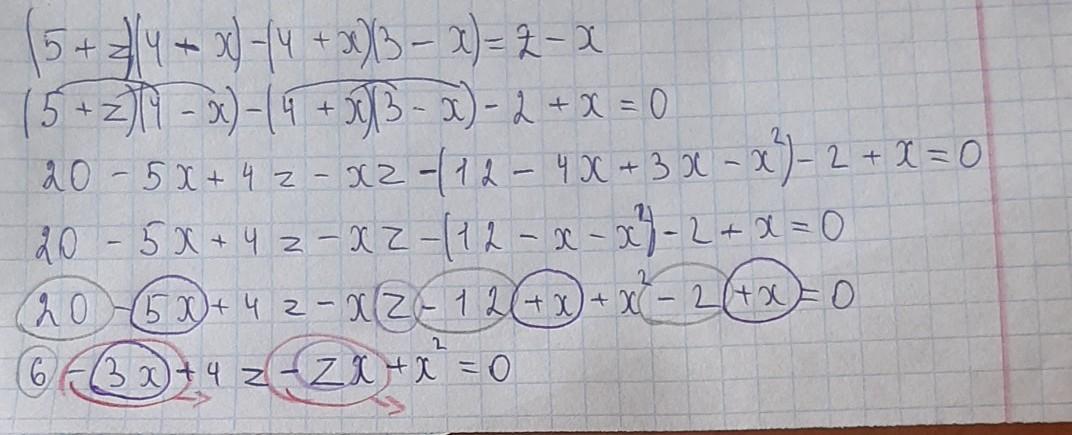 (5 + z)(4 - x) - (4 + x)(3 - x) = 2 - x
(5 + z)(4 - x) - (4 + x)(3 - x) - 2 + x = 0
20 - 5x + 4z - xz - (12 - 4x + 3x - x²) - 2 + x = 0
20 - 5x + 4z - xz - (12 - x - x²) - 2 + x = 0
20 - 5x + 4z - xz - 12 + x + x² - 2 + x = 0
6 - 3x + 4z - zx + x² = 0